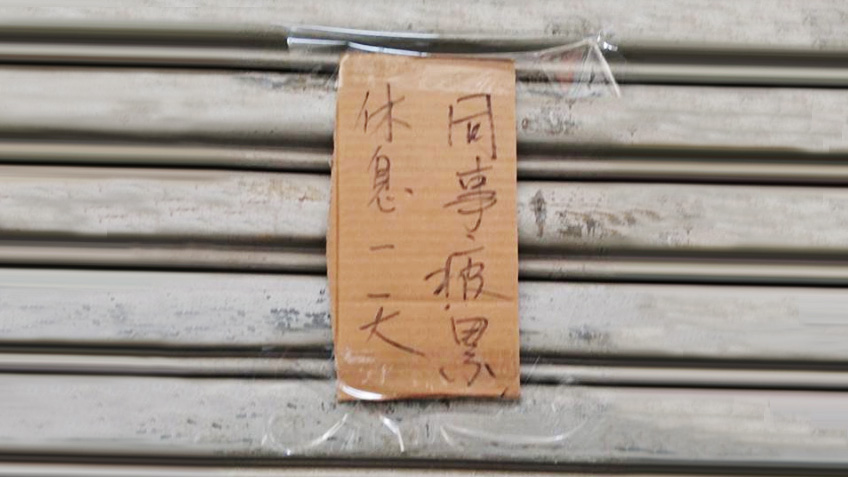 同事疲累
休息一天